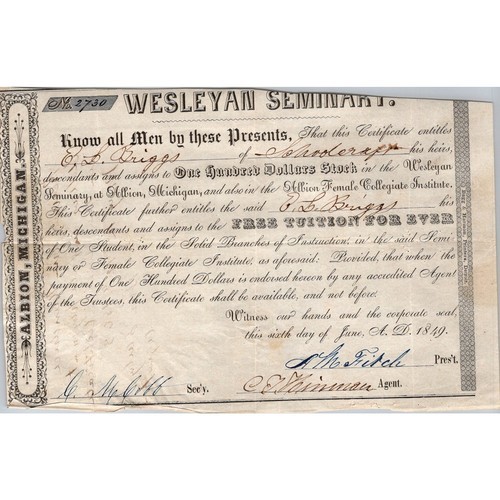 No. 2730
WESLEYAN SEMINARY.
Know all Men by these Presents, That this Certificate entitles
E. L. Briggs of Schoolcraft his heirs,
descendants and assigns to One Hundred Dollars Stock in the Wesleyan
Seminary, at Albion, Michigan, and also in the Albion Female Collegiate Institute.
This Certificate further entitles the said E. L. Briggs his
heirs, descendants and assigns to the FREE TUITION FOR EVER
of One Student, in the Solid Branches of Instruction, in the said Semi-
nary or Female Collegiate Institute, as aforesaid: Provided, that when the
payment of One Hundred Dollars is endorsed hereon by any accredited Agent
of the Trustees, this Certificate shall be available, and not before.
Witness our hands and the corporate seal,
this sixth day of June, A. D. 1849.
Pres't.
Sec'y.
C. T. Hinman Agent.
ALBION, MICHIGAN.